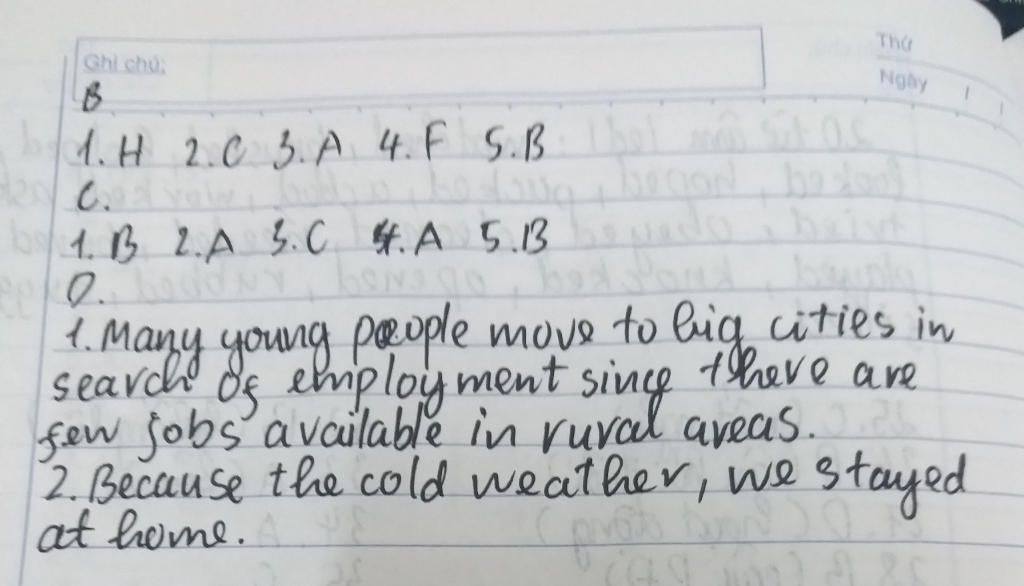 Ghi chú:
Thứ
Ngày
B
1. H 2. C 3. A 4. F 5. B
C.
1. B 2. A 3. C 4. A 5. B
D.
1. Many young people move to big cities in
search of employment since there are
few jobs available in rural areas.
2. Because the cold weather, we stayed
at home.